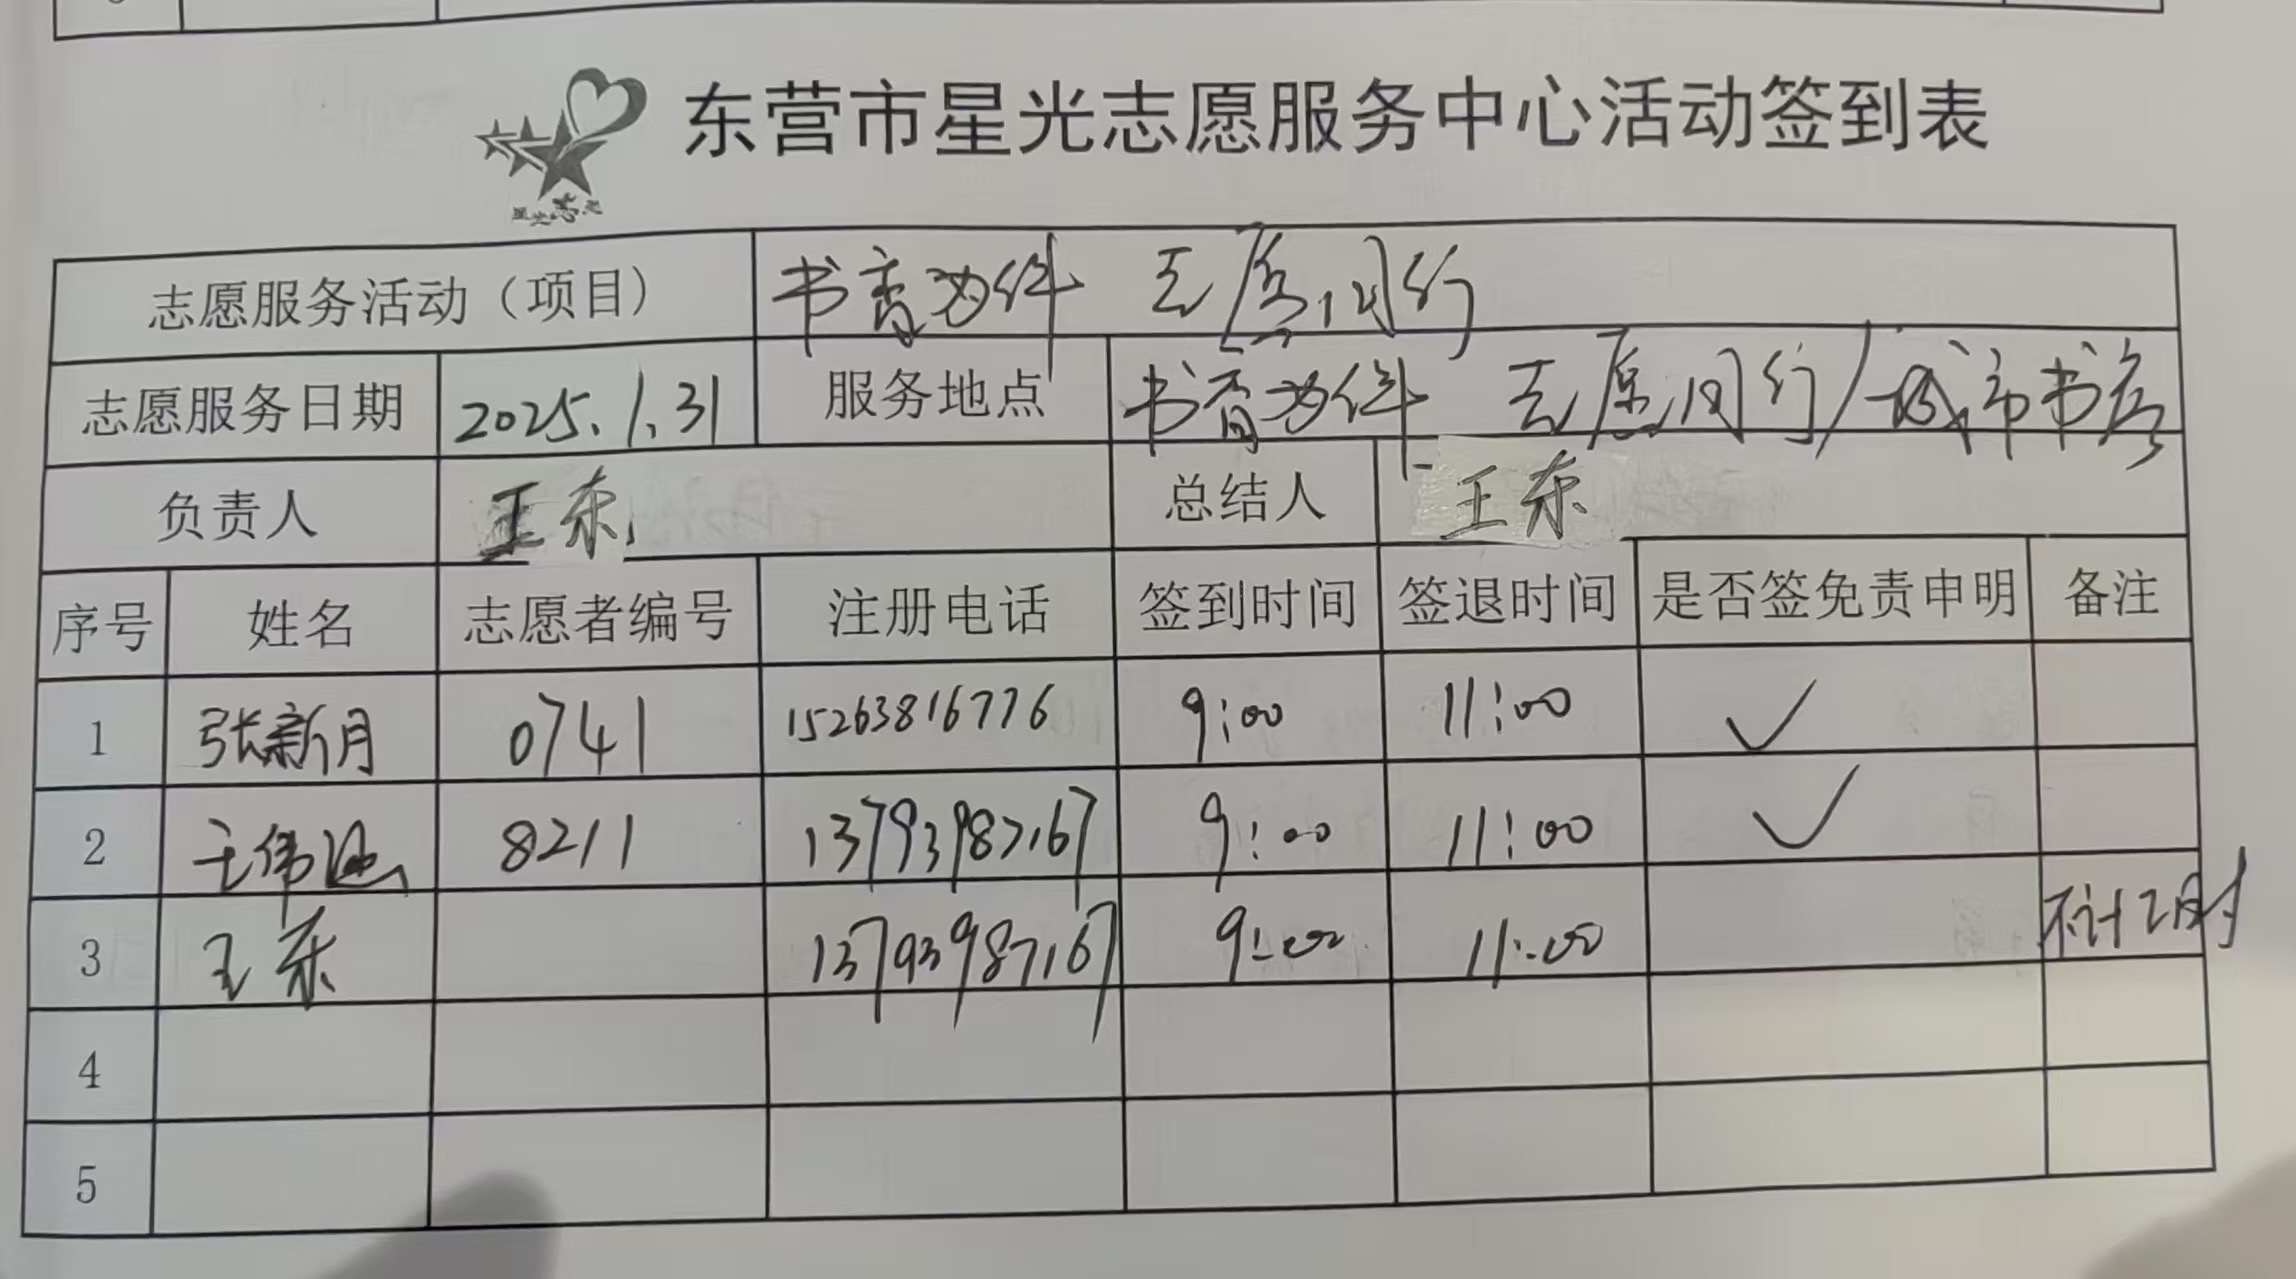 东营市星光志愿服务中心活动签到表
星光志愿
志愿服务活动（项目） 书香为伴 志愿同行
志愿服务日期 2025.1.31 服务地点 书香为伴 志愿同行/城市书房
负责人 王东 总结人 王东
序号 姓名 志愿者编号 注册电话 签到时间 签退时间 是否签免责申明 备注
1 张新月 0741 15263816776 9:00 11:00 ✓
2 王伟 8211 13793987167 9:00 11:00 ✓
3 王东 13793987167 9:00 11:00 不计工时
4
5